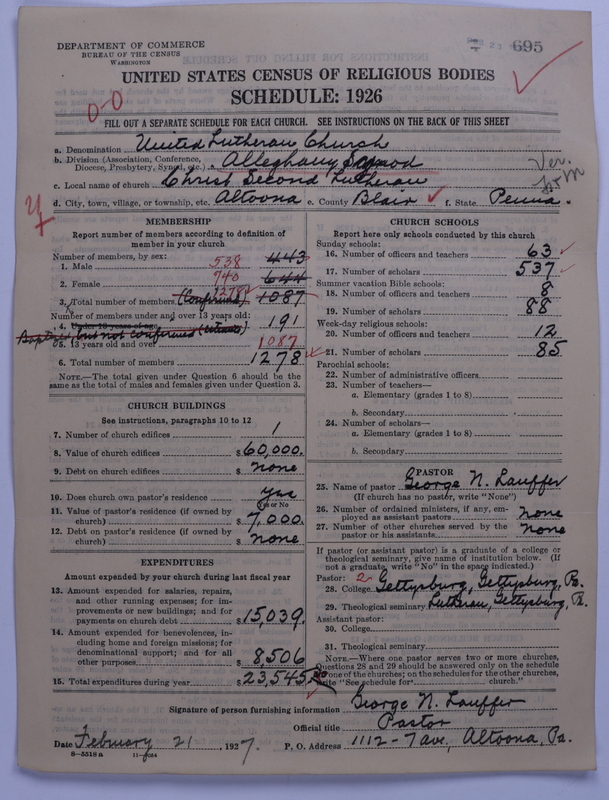 DEPARTMENT OF COMMERCE
BUREAU OF THE CENSUS
WASHINGTON
695
UNITED STATES CENSUS OF RELIGIOUS BODIES
SCHEDULE: 1926
0-0
FILL OUT A SEPARATE SCHEDULE FOR EACH CHURCH. SEE INSTRUCTIONS ON THE BACK OF THIS SHEET
a. Denomination United Lutheran Church
b. Division (Association, Conference, Diocese, Presbytery, Synod, etc.) Alleghany Synod
c. Local name of church Christ Second Lutheran
Ver.
d. City, town, village, or township, etc. Altoona e. County Blair f. State Penna.
MEMBERSHIP
Report number of members according to definition of
member in your church
Number of members, by sex:
1. Male 538 443
2. Female 740 644
1278
3. Total number of members (Confirmed) 1087
Number of members under and over 13 years old:
4. Under 13 years of age 191
Baptized, but not confirmed
5. 13 years old and over 1087
6. Total number of members 1278
NOTE.—The total given under Question 6 should be
same as the total of males and females given under Question 3.
CHURCH BUILDINGS
See instructions, paragraphs 10 to 12
7. Number of church edifices 1
8. Value of church edifices $60,000.
9. Debt on church edifices $ none
10. Does church own pastor's residence yes
Yes or No
11. Value of pastor's residence (if owned by
church) $ 7,000.
12. Debt on pastor's residence (if owned by
church) $ none
EXPENDITURES
Amount expended by your church during last fiscal year
13. Amount expended for salaries, repairs,
and other running expenses; for im-
provements or new buildings; and for
payments on church debt $15,039.
14. Amount expended for benevolences, in-
cluding home and foreign missions; for
denominational support; and for all
other purposes $ 8,506
15. Total expenditures during year $23,545
CHURCH SCHOOLS
Report here only schools conducted by this church
Sunday schools:
16. Number of officers and teachers 63
17. Number of scholars 537
Summer vacation Bible schools:
18. Number of officers and teachers 8
19. Number of scholars 88
Week-day religious schools:
20. Number of officers and teachers 12
21. Number of scholars 85
Parochial schools:
22. Number of administrative officers
23. Number of teachers—
a. Elementary (grades 1 to 8)
b. Secondary
24. Number of scholars—
a. Elementary (grades 1 to 8)
b. Secondary
PASTOR
25. Name of pastor George N. Lauffer
(If church has no pastor, write "None")
26. Number of ordained ministers, if any, em-
ployed as assistant pastors none
27. Number of other churches served by the
pastor or his assistants none
If pastor (or assistant pastor) is a graduate of a college or
theological seminary, give name of institution below. (If
not a graduate, write "No" in the space indicated.)
Pastor: 2
28. College Gettysburg, Gettysburg, Pa.
29. Theological seminary Lutheran, Gettysburg, Pa.
Assistant pastor:
30. College
31. Theological seminary
NOTE.—Where one pastor serves two or more churches,
Questions 28 and 29 should be answered only on the schedule
of one of the churches; on the schedules for the other churches,
write "See schedule for church."
Signature of person furnishing information George N. Lauffer
Official title Pastor
Date February 21, 1927. P. O. Address 1112 - 7 ave., Altoona, Pa.
8—5518 a